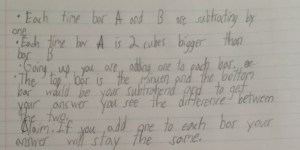 • Each time bar A and B are subtracting by
one
• Each time bar A is 2 cubes bigger than
bar B
• Going up you are adding one to each bar, 
• The top bar is the minuen and the bottom
bar would be your subtrahend and to get
your answer you see the difference between
the two.
Claim: If you add one to each bar your
answer will stay the same.